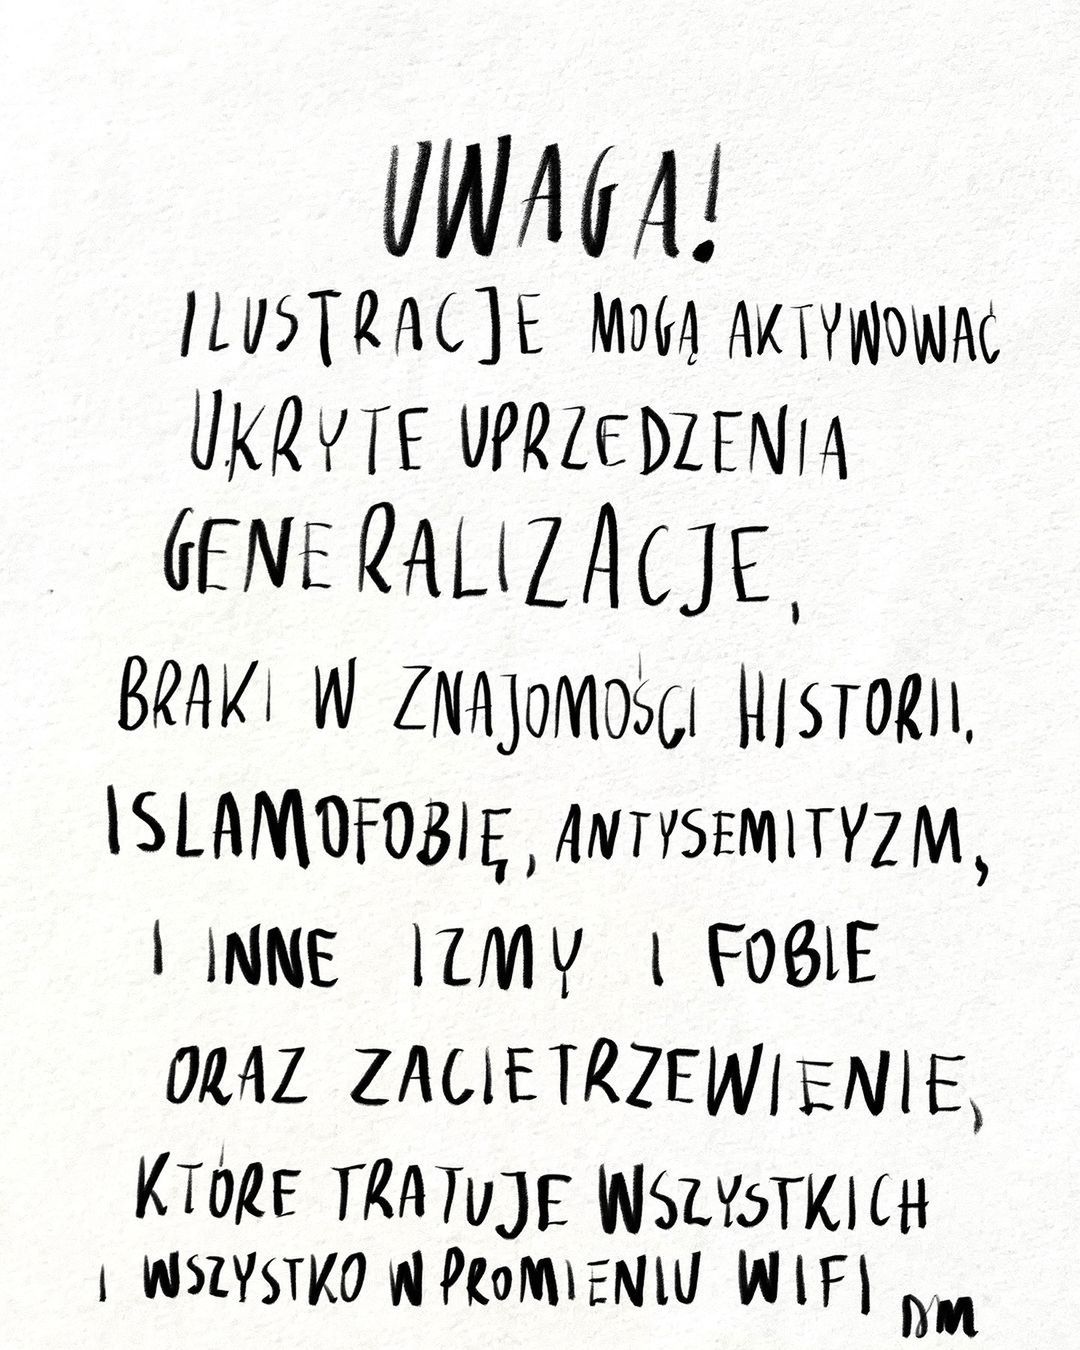 UWAGA!
ILUSTRACJE MOGĄ AKTYWOWAĆ
UKRYTE UPRZEDZENIA
GENERALIZACJE,
BRAKI W ZNAJOMOŚCI HISTORII.
ISLAMOFOBIĘ, ANTYSEMITYZM,
I INNE IZMY I FOBIE
ORAZ ZACIETRZEWIENIE,
KTÓRE TRATUJE WSZYSTKICH
I WSZYSTKO W PROMIENIU WIFI
DM